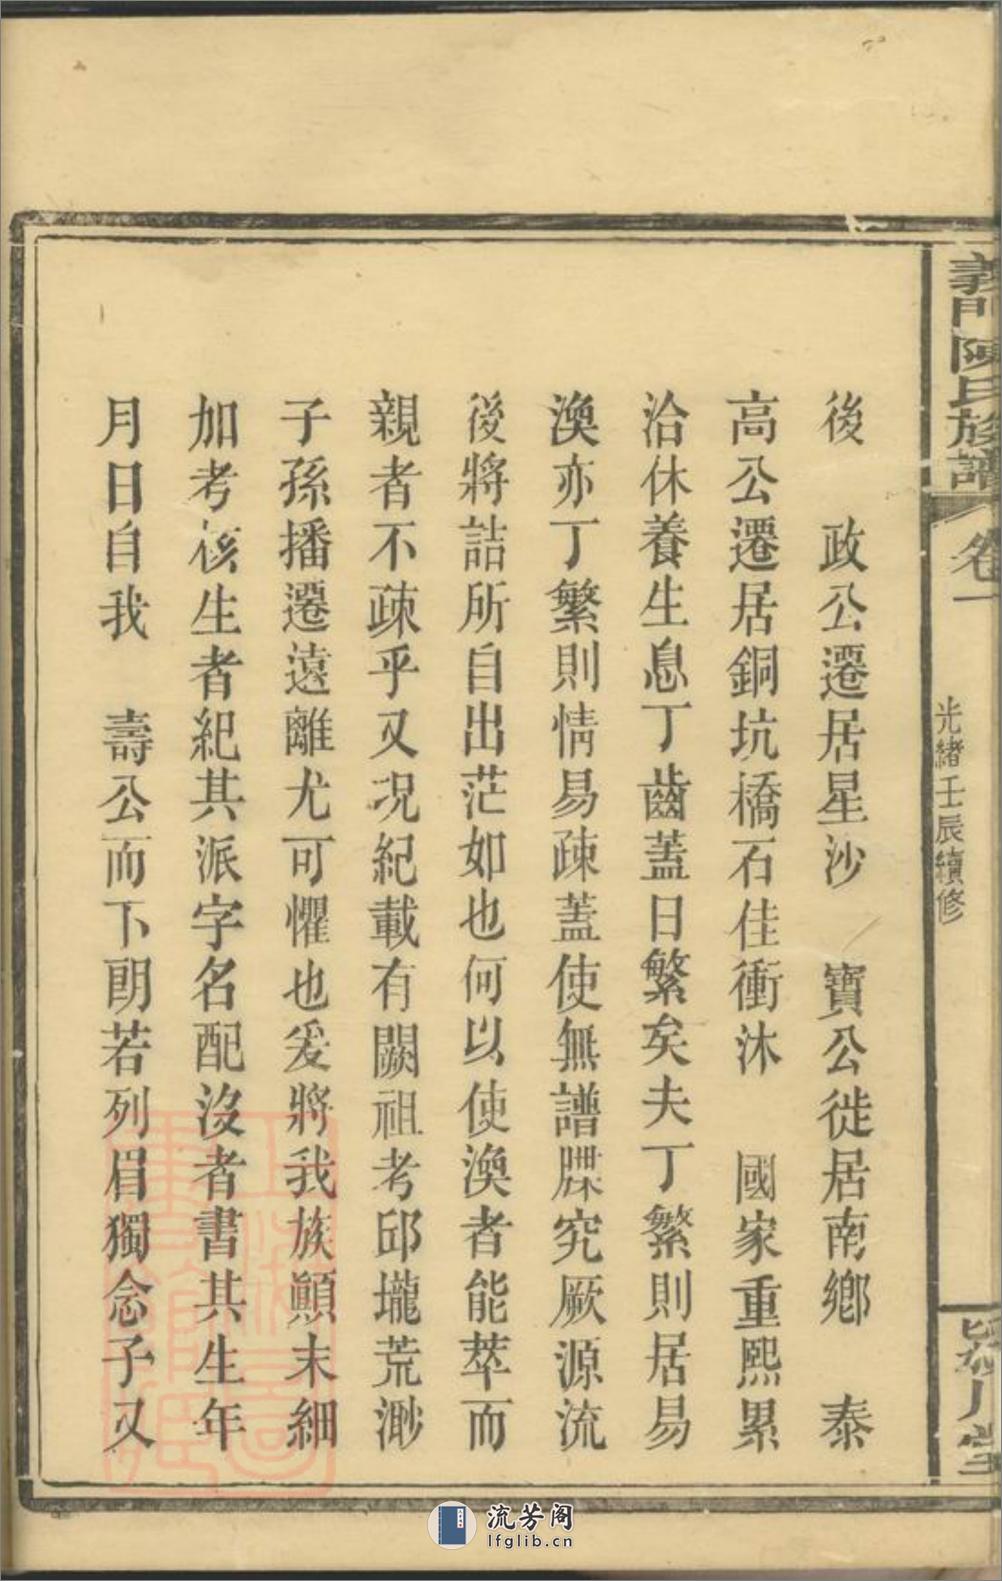 義門陳氏族譜
卷一
光緒壬辰續修
潁川堂
後 政公遷居星沙 寶公徙居南鄉 泰
高公遷居銅坑橋石佳衝沐 國家重熙累
洽休養生息丁齒蓋日繁矣夫丁繁則居易
渙亦丁繁則情易疎蓋使無譜牒究厥源流
後將詰所自出茫如也何以使渙者能萃而
親者不疎乎又况紀載有闕祖考邱壠荒渺
子孫播遷遠離尤可懼也爰將我族顛末細
加考核生者紀其派字名配沒者書其生年
月日自我 壽公而下朗若列眉獨念子又
流芳阁
lfglib.cn